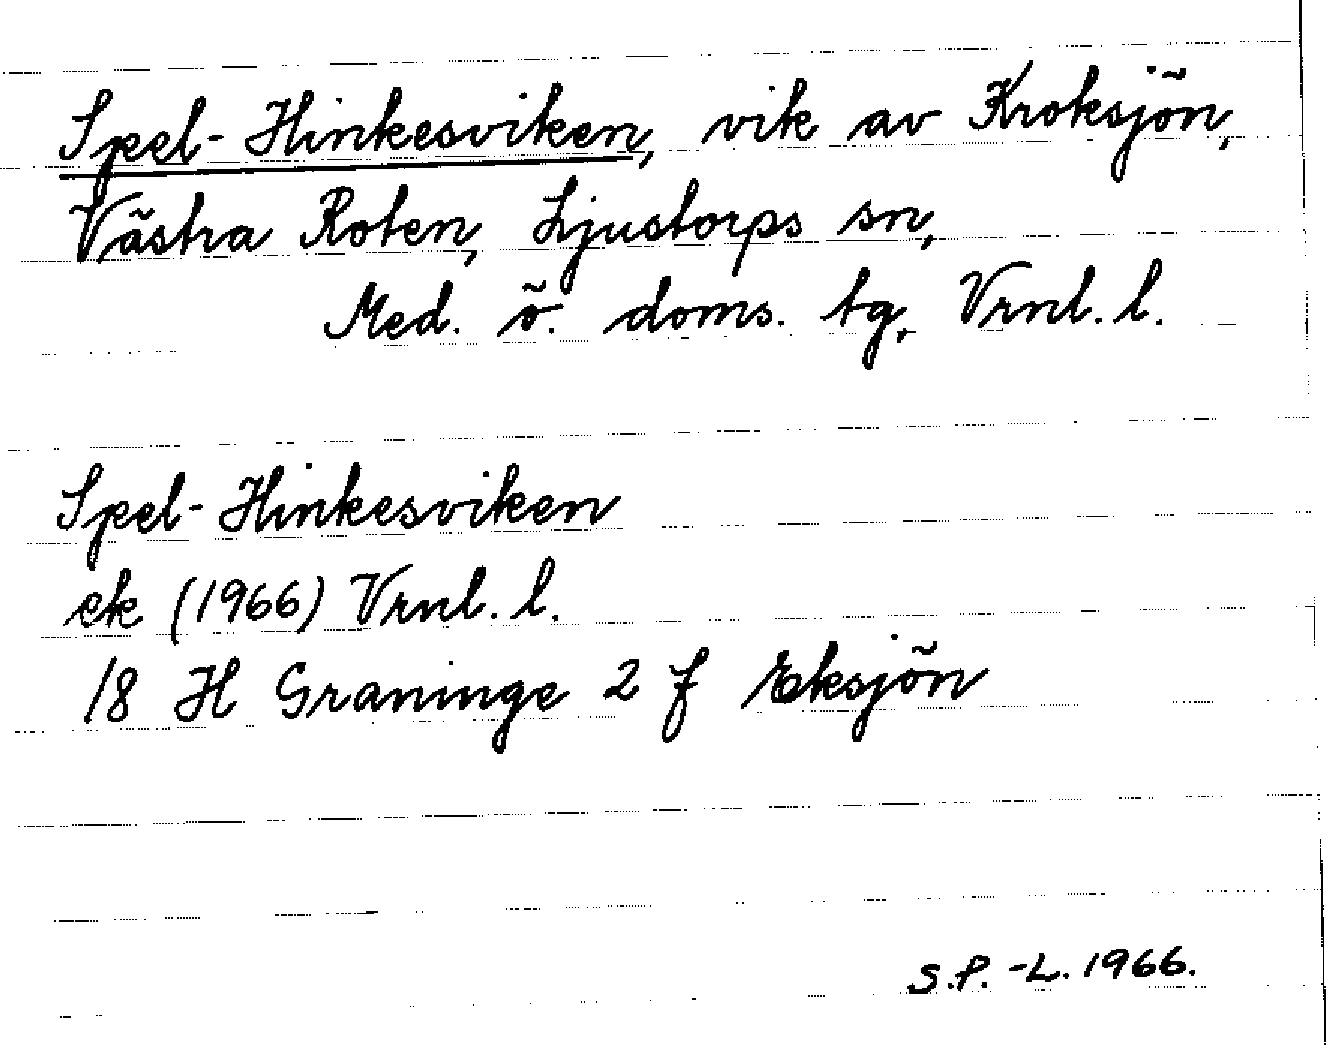 Spel-Hinkesviken, vik av Kroksjön,
Västra Roten, Ljustorps sn,
Med. ö. doms. tg, Vrnl. l.
Spel-Hinkesviken
ek (1966) Vrnl. l.
18 H Graninge 2 f Eksjön
S.P.-L. 1966.